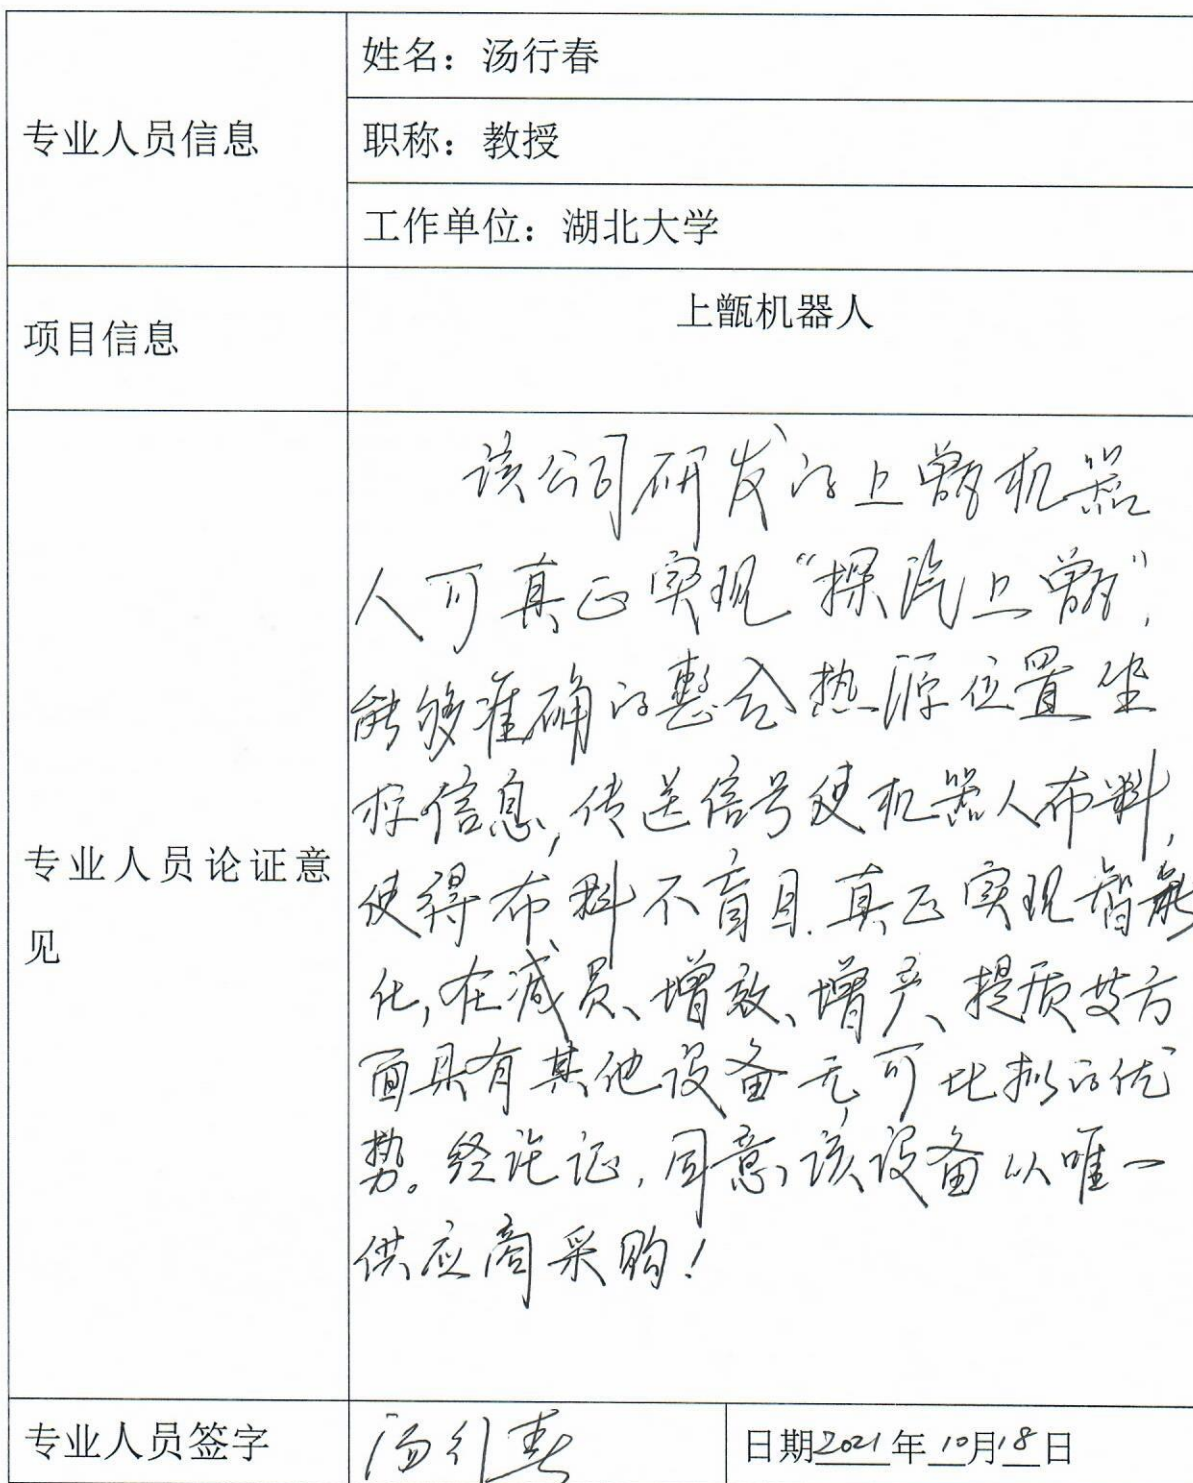 专业人员信息
姓名：汤行春
职称：教授
工作单位：湖北大学
项目信息
上甑机器人
专业人员论证意
见
该公司研发的上甑机器
人可真正实现“探汽上甑”,
能够准确的整合热源位置坐
标信息,传送信号使机器人布料,
使得布料不盲目.真正实现智能
化,在减员、增效、增产、提质等方
面具有其他设备无可比拟的优
势。经论证,同意该设备以唯一
供应商采购!
专业人员签字
汤行春
日期2021年10月18日